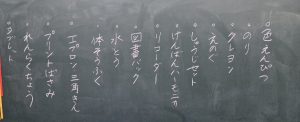 。色えんぴつ
。のり
。クレヨン
。えのぐ
。しゅうじセット
。けんばんハーモニカ
。リコーダー
。図書バッグ
。水とう
。体そうふく
。エプロン、三角きん
。プリントばさみ
。れんらくちょう
。タブレット